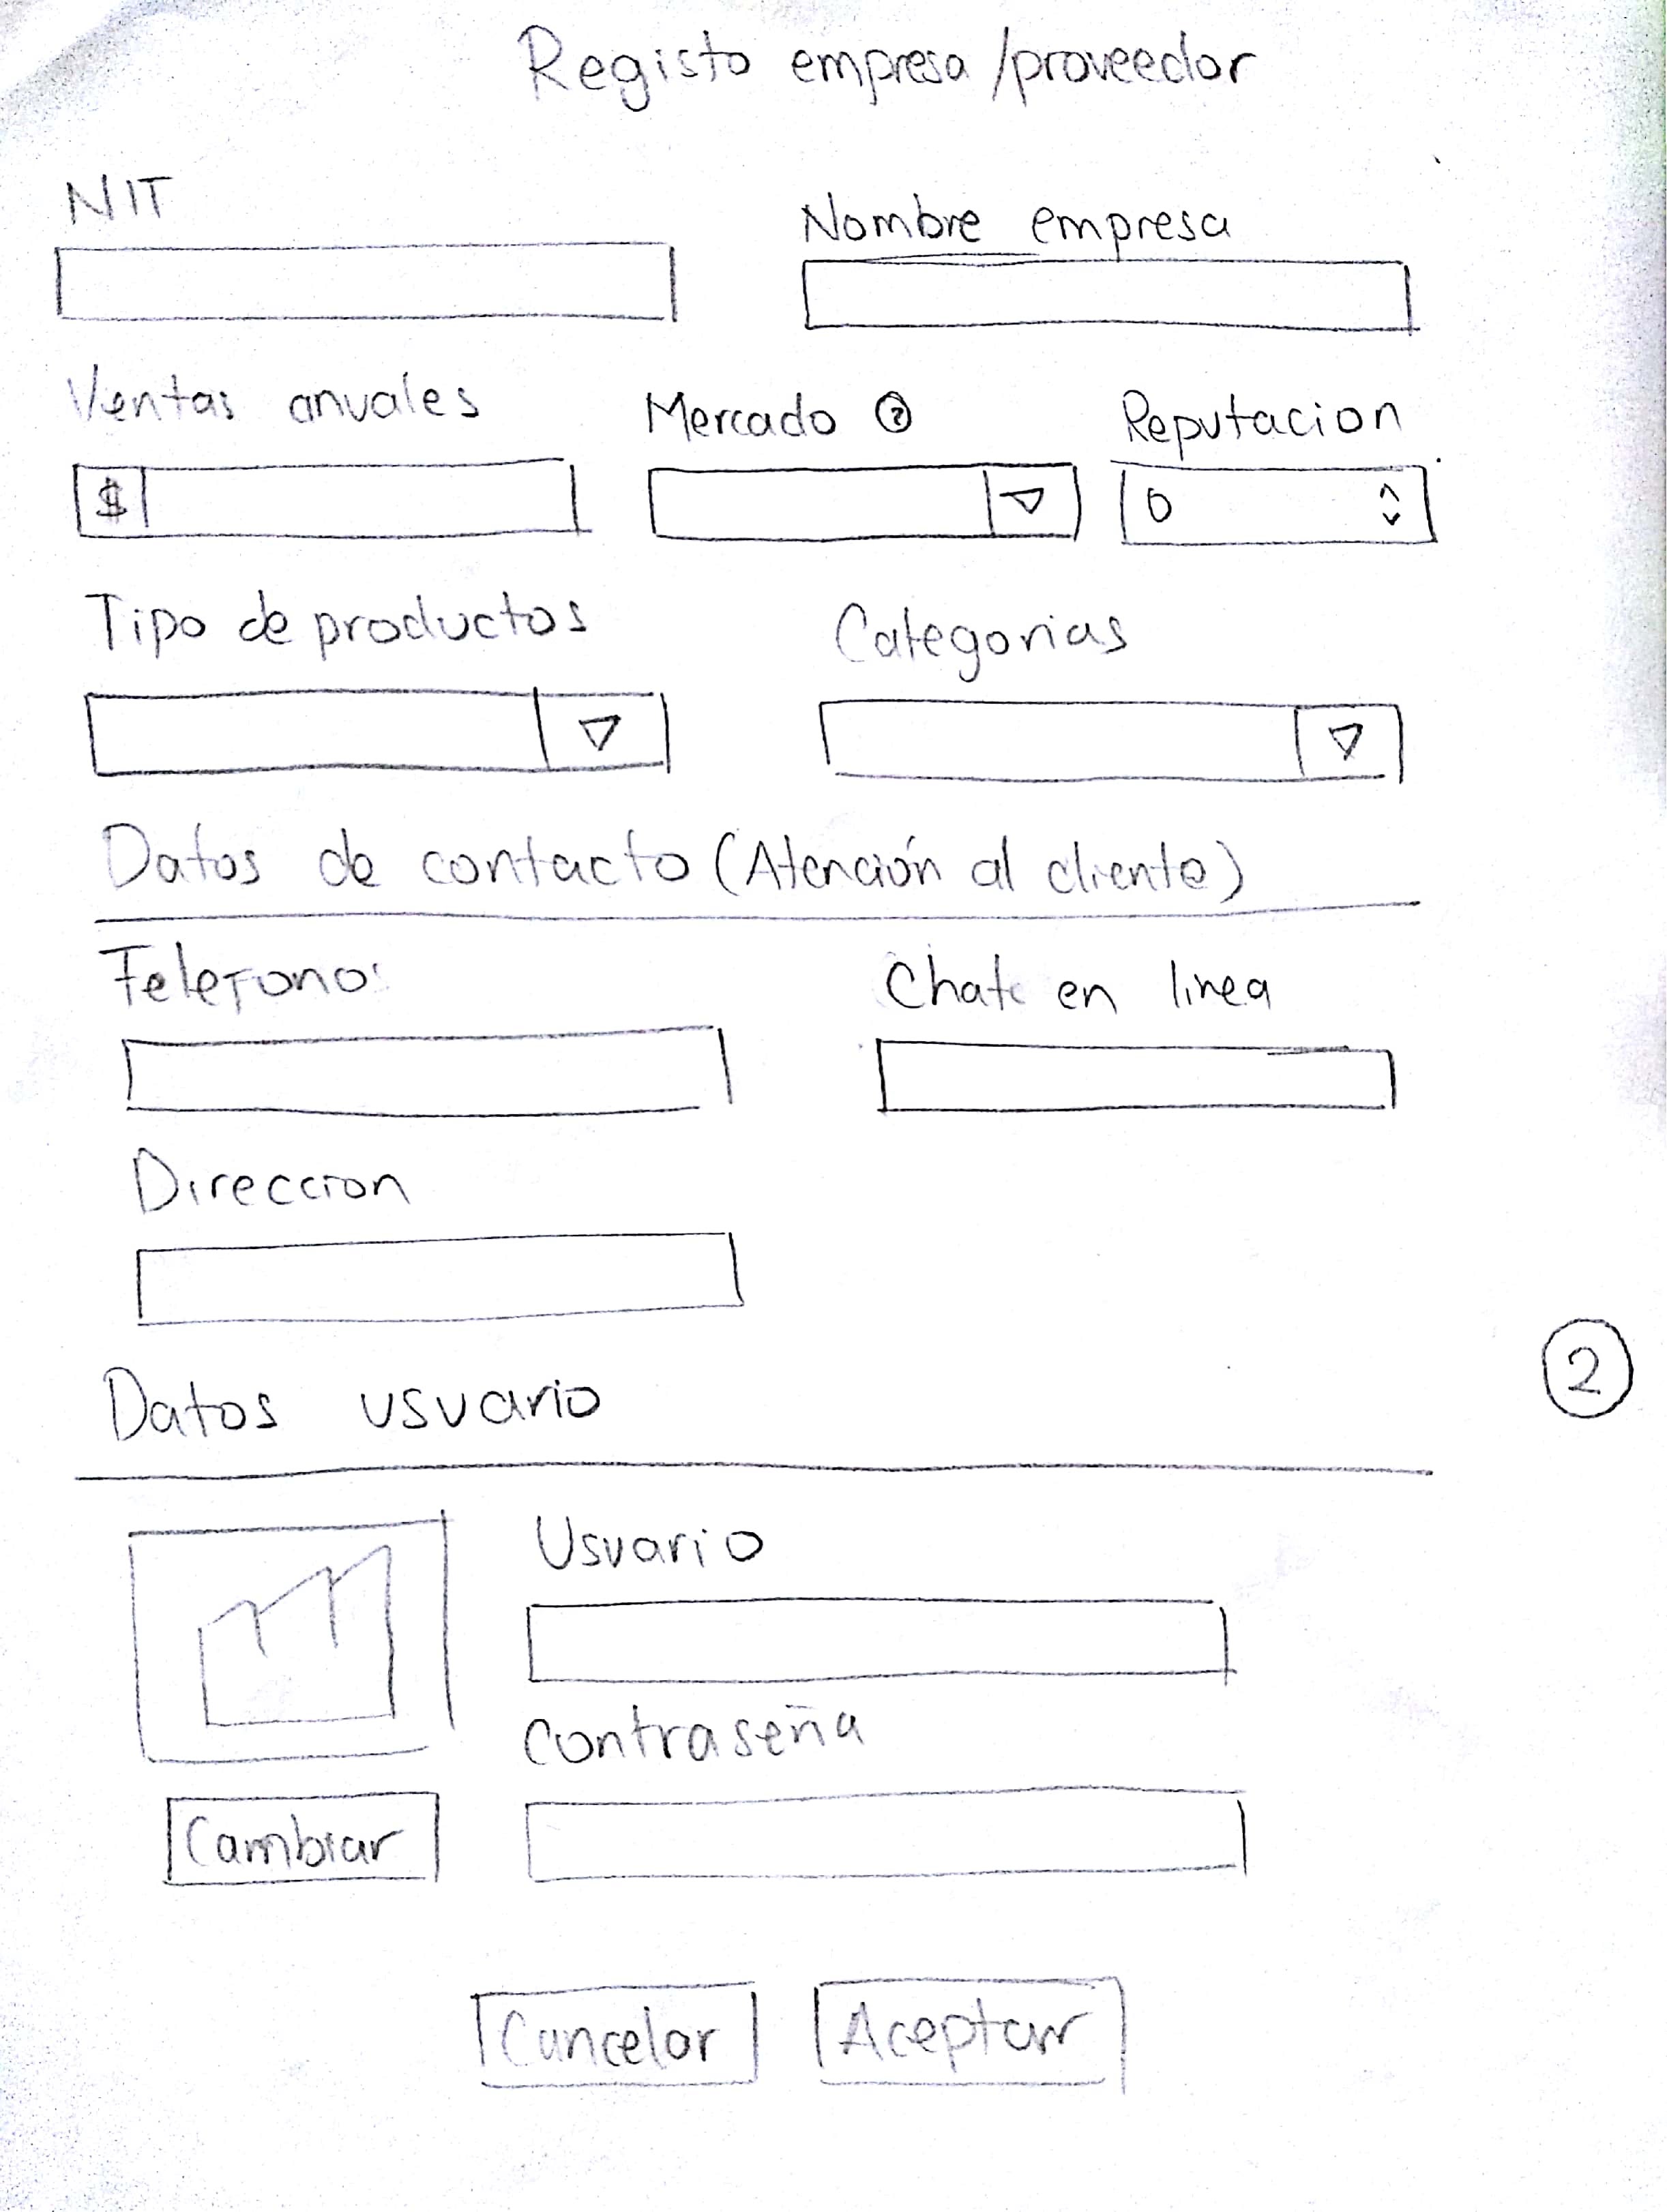 Registo empresa /proveedor
NIT
Nombre empresa
Ventas anuales
Mercado ?
Reputacion
$
0
Tipo de productos
Categorias
Datos de contacto (Atención al cliente)
Telefono
Chat en linea
Direccion
2
Datos usuario
Usuario
Contraseña
Cambiar
Cancelar
Aceptar